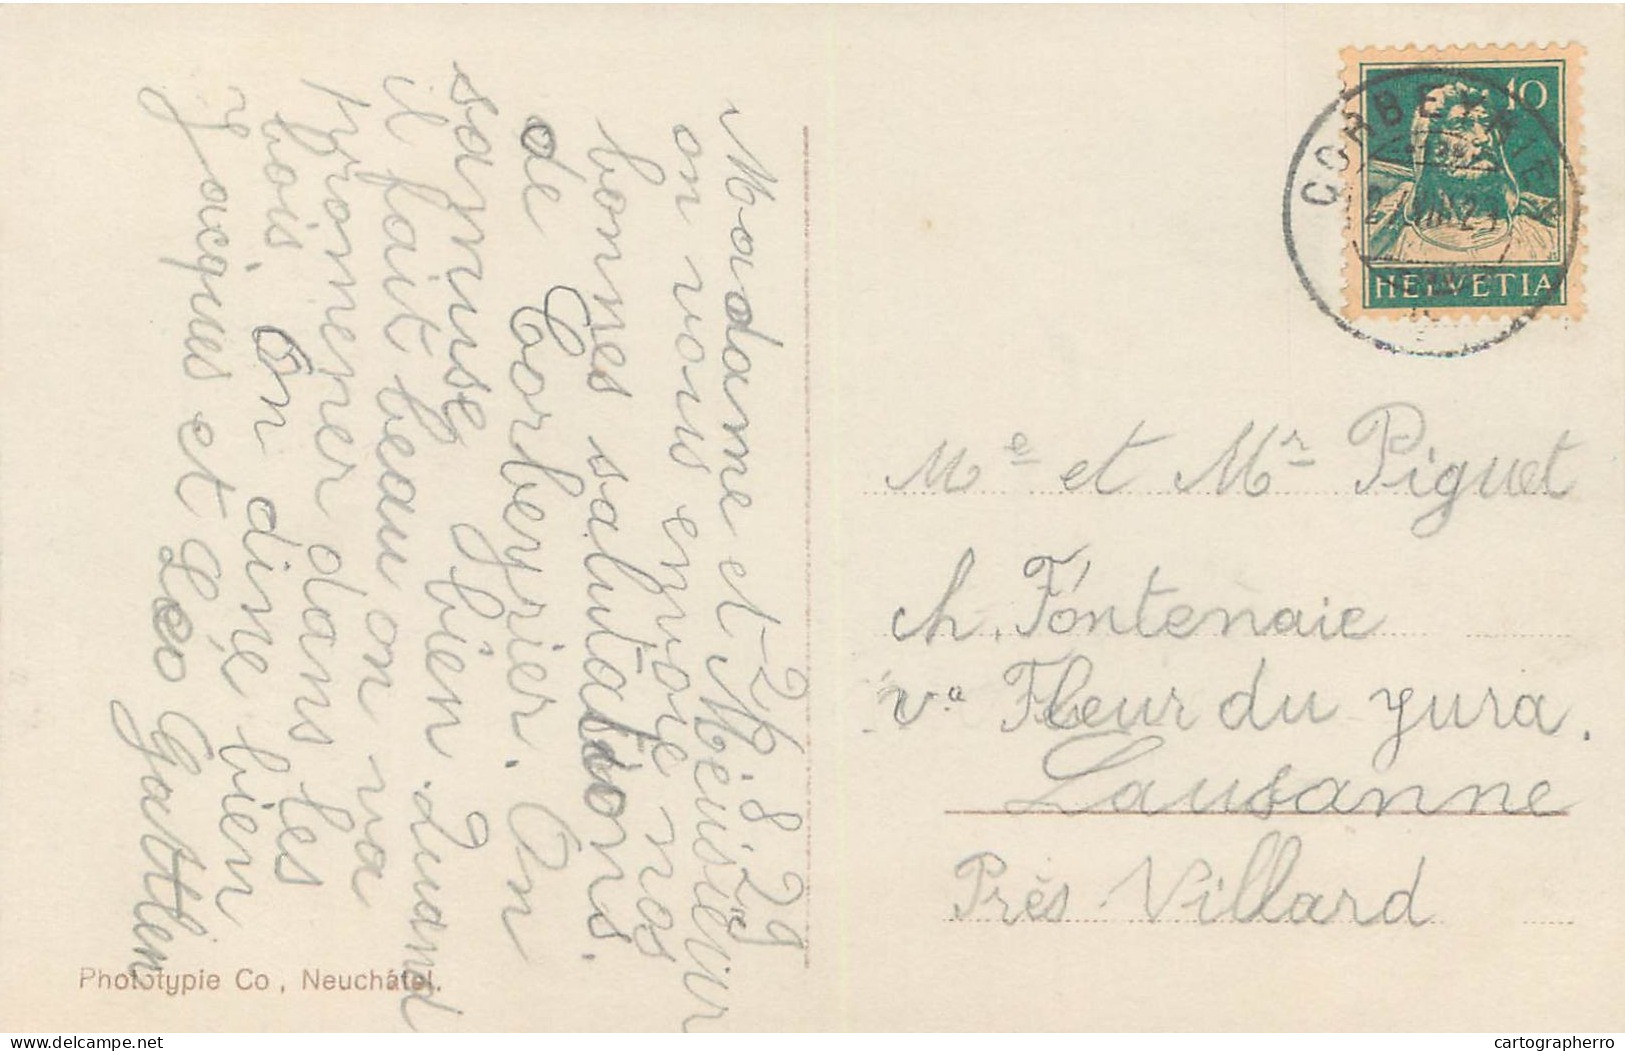 24 8 29
Madame et Mèusieur
on vous envoie nos
bonnes salutations.
de Corbeyrier. On
samuse bien. Quand
il fait beau on va
promener dans les
bois. On dine bien
Jacques et Léo Gattlen
Phototypie Co, Neuchâtel.
10
HELVETIA
CORBEYRIER
Me et Mr Piguet
Ch. Fontenaie
va Fleur du Jura.
Lausanne
Près Villard
delcampe.net
cartographerro